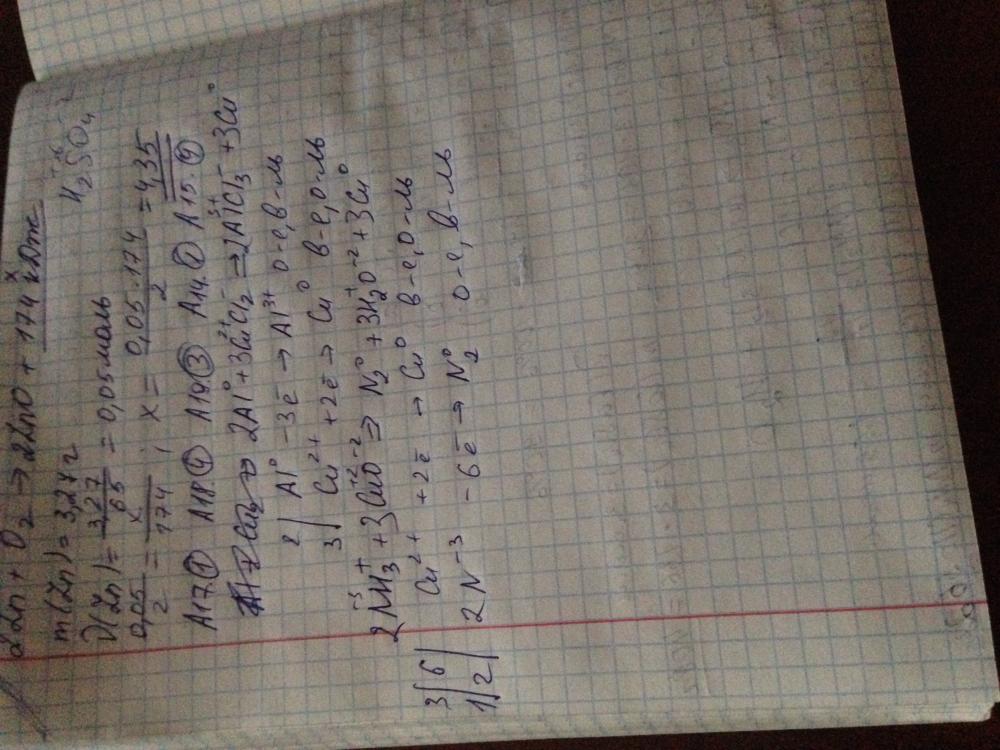 2Zn + O₂ → 2ZnO + 174 кДж
x
m(Zn) = 3,27 г
H₂SO₄
ν(Zn) = 3,27/65 = 0,05 моль
0,05/2 = x/174 ; x = 0,05·174/2 = 4,35
A17.① A18.④ A19.③ A14.① A15.④
2Al⁰ + 3Cu²⁺Cl₂⁻ → 2Al³⁺Cl₃⁻ + 3Cu⁰
2| Al⁰ -3ē → Al³⁺ о-е, в-ль
3| Cu²⁺ +2ē → Cu⁰ в-е, о-ль
2N⁻³H₃⁺ + 3Cu⁺²O⁻² → N₂⁰ + 3H₂⁺O⁻² + 3Cu⁰
3|6| Cu²⁺ +2ē → Cu⁰ в-е, о-ль
1|2| 2N⁻³ -6ē → N₂⁰ о-е, в-ль